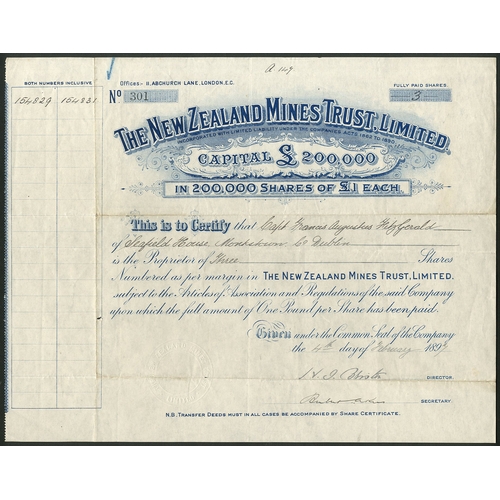 A 149
BOTH NUMBERS INCLUSIVE
154829 154831
OFFICES:- 11, ABCHURCH LANE, LONDON, E.C.
No 301
FULLY PAID SHARES.
3
THE NEW ZEALAND MINES TRUST, LIMITED,
INCORPORATED WITH LIMITED LIABILITY UNDER THE COMPANIES ACTS 1862 TO 1890.
CAPITAL £200,000
IN 200,000 SHARES OF £1 EACH.
This is to Certify that Capt Francis Augustus FitzGerald
of Seafield House, Monkstown, Co Dublin
is the Proprietor of Three Shares
Numbered as per margin in THE NEW ZEALAND MINES TRUST, LIMITED.
subject to the Articles of Association and Regulations of the said Company
upon which the full amount of One Pound per Share has been paid.
Given under the Common Seal of the Company
the 4th day of February 189
DIRECTOR.
SECRETARY.
N.B. TRANSFER DEEDS MUST IN ALL CASES BE ACCOMPANIED BY SHARE CERTIFICATE.